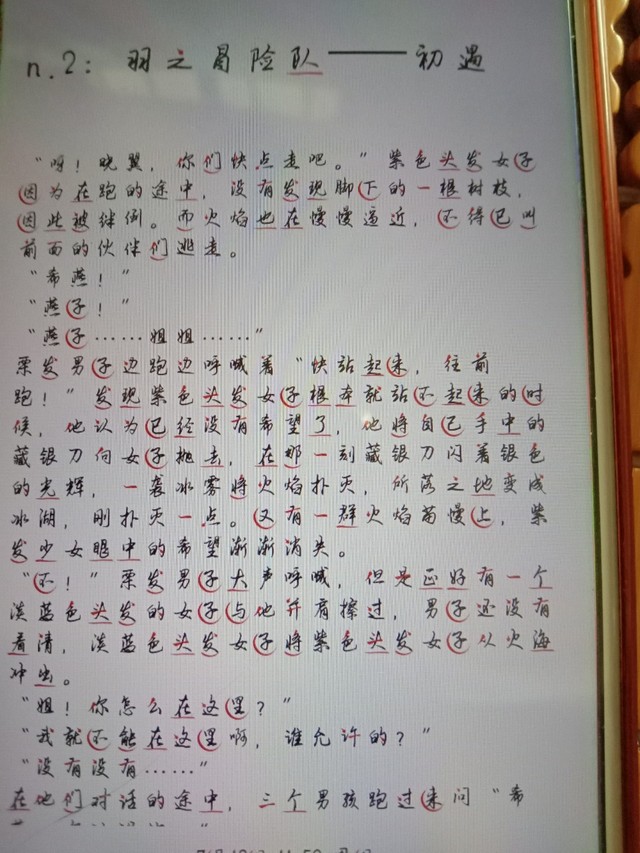 n.2：羽之冒险队——初遇
“呀！晓翼，你们快点走吧。”紫色头发女子
因为在跑的途中，没有发现脚下的一根树枝，
因此被绊倒。而火焰也在慢慢逼近，不得已叫
前面的伙伴们逃走。
“希燕！”
“燕子！”
“燕子……姐姐……”
栗发男子边跑边呼喊着“快站起来，往前
跑！”发现紫色头发女子根本就站不起来的时
候，他认为已经没有希望了，他将自己手中的
藏银刀向女子抛去，在那一刻藏银刀闪着银色
的光辉，一袭冰雾将火焰扑灭，所落之地变成
冰湖，刚扑灭一点。又有一群火焰蔓慢上，紫
发少女眼中的希望渐渐消失。
“不！”栗发男子大声呼喊，但是正好有一个
淡蓝色头发的女子与他并肩擦过，男子还没有
看清，淡蓝色头发女子将紫色头发女子从火海
冲出。
“姐！你怎么在这里？”
“我就不能在这里啊，谁允许的？”
“没有没有……”
在他们对话的途中，三个男孩跑过来问“希